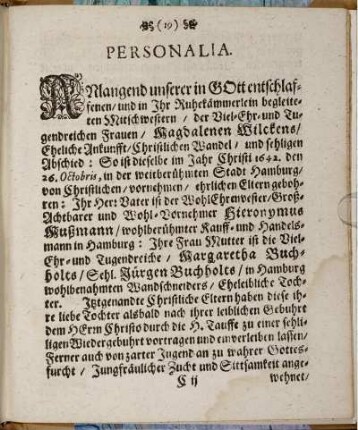 (19)
PERSONALIA.
ANlangend unserer in GOtt entschlaf-
fenen/und in Ihr Ruhekämmerlein begleite-
ten Mitschwestern / der Viel-Ehr-und Tu-
gendreichen Frauen/ Magdalenen Wilckens/
Eheliche Ankunfft/Christlichen Wandel/ und sehligen
Abschied: So ist dieselbe im Jahr Christi 1642. den
26. Octobris, in der weitberühmten Stadt Hamburg/
von Christlichen/vornehmen/ ehrlichen Eltern geboh-
ren: Ihr Herr Vater ist der WohlEhrenvester/Groß-
Achtbarer und Wohl-Vornehmer Hieronymus
Mußmann/wohlberühmter Kauff-und Handels-
mann in Hamburg: Ihre Frau Mutter ist die Viel-
Ehr-und Tugendreiche/ Margaretha Buch-
holts/Sehl. Jürgen Buchholts/in Hamburg
wohlbenahmten Wandschneiders/ Eheleibliche Toch-
ter. Jtztgenandte Christliche Eltern haben diese ih-
re liebe Tochter alsbald nach ihrer leiblichen Gebuhrt
dem HErrn Christo durch die H. Tauffe zu einer sehli-
ligen Wiedergebuhrt vortragen und einverleiben lassen/
Ferner auch von zarter Jugend an zu wahrer Gottes-
furcht / Jungfräulicher Zucht und Sittsamkeit ange-
C ij wehnet/